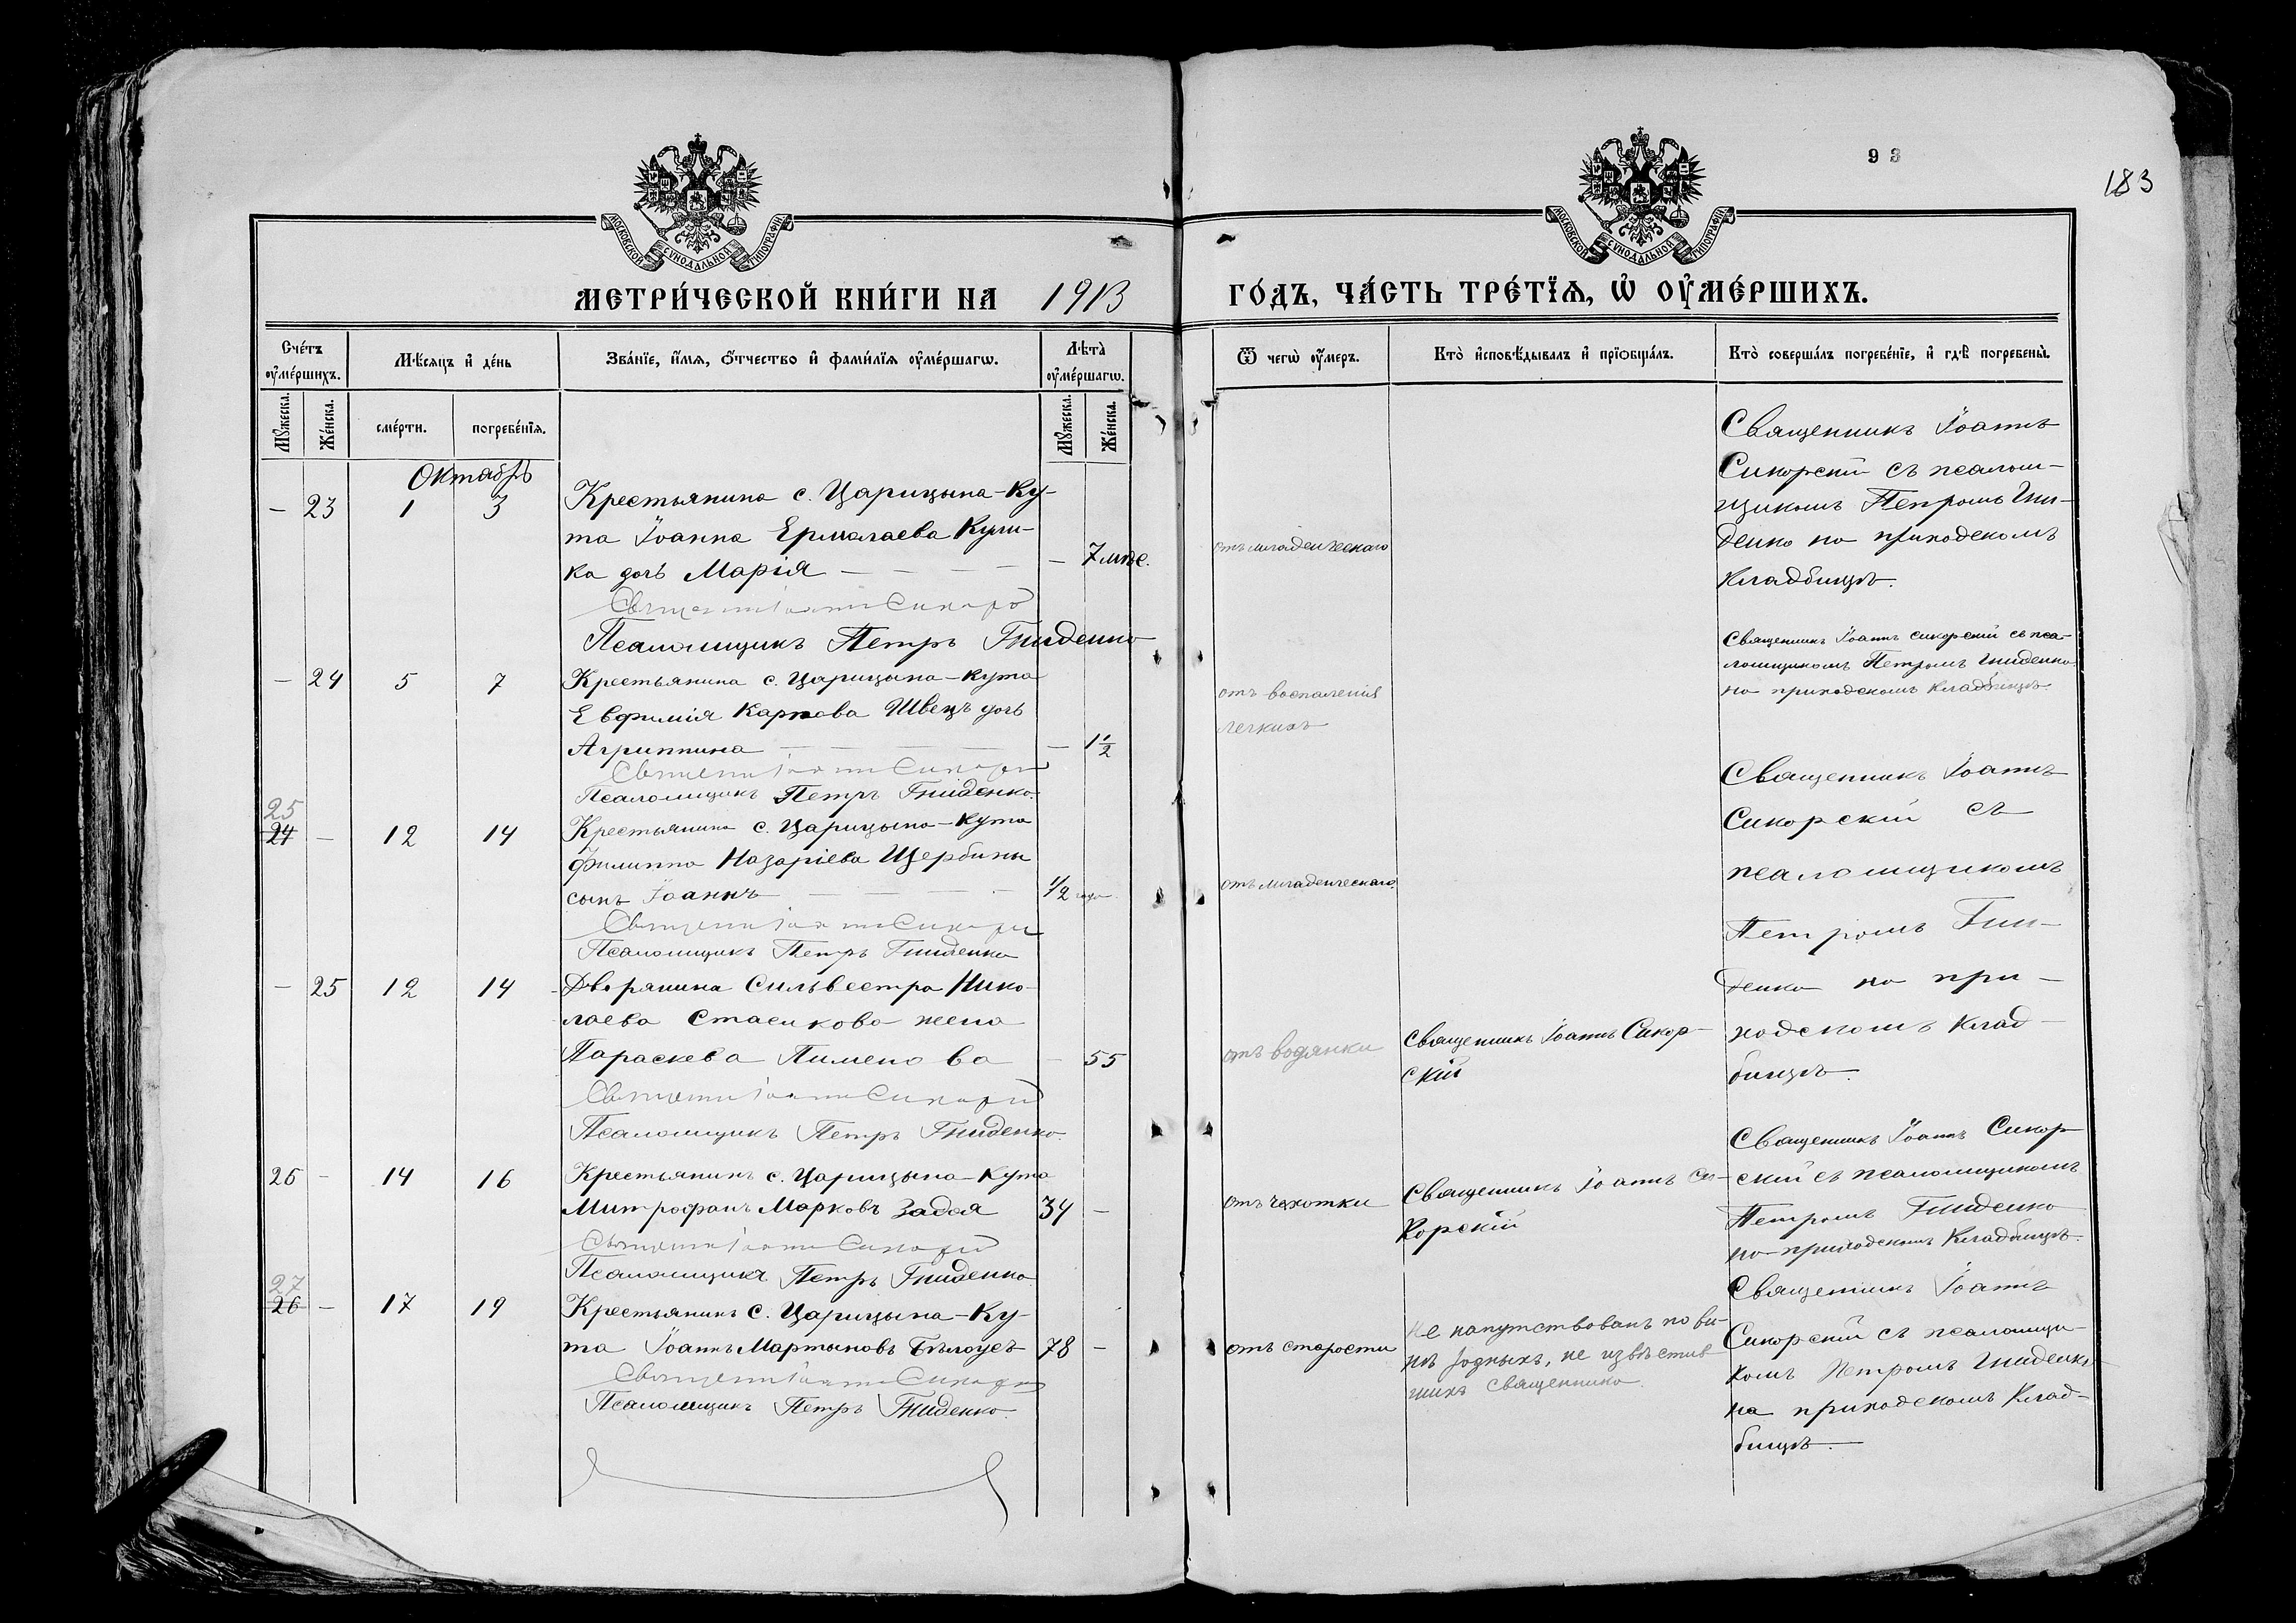 93
183
МОСКОВСКОЙ СѴНОДАЛЬНОЙ ТИПОГРАФІИ
МОСКОВСКОЙ СѴНОДАЛЬНОЙ ТИПОГРАФІИ
МЕТРИ́ЧЕСКОЙ КНИ́ГИ НА 1913
ГО́ДЪ, ЧА́СТЬ ТРЕ́ТЇѦ, Ѡ҆ ОУ҆МЕ́РШИХЪ.
Сче́тъ оу҆ме́ршихъ.
Мѣ́сяцъ и҆ де́нь
Зва́нїе, и҆́мѧ, ѻ҆́тчество и҆ фами́лїѧ оу҆ме́ршагѡ.
Лѣта̀ оу҆ме́ршагѡ.
Ѿ чегѡ̀ оу҆́меръ.
Кто̀ и҆сповѣ́дывалъ и҆ прїѡбща́лъ.
Кто̀ соверша́лъ погребе́нїе, и҆ гдѣ̀ погребены̀.
Мꙋжеска.
Же́нска.
сме́рти.
погребе́нїѧ.
Мꙋжеска.
Же́нска.
Октябрь
– 23 1 3
Крестьянина с. Царицына-Ку-
та Іоанна Ермалаева Кули-
ка дочь Марія – 7 мѣс.
Псаломщикъ Петръ Гниденко
отъ младенческаго
Священникъ Іоаннъ
Сикорскій съ псалом-
щикомъ Петромъ Гни-
денко на приходскомъ
кладбищѣ.
– 24 5 7
Крестьянина с. Царицына-Кута
Евфимія Карпова Швецъ дочь
Агриппина – 1½
Псаломщикъ Петръ Гниденко.
отъ воспаленія
легкихъ
Священникъ Іоаннъ Сикорскій съ пса-
ломщикомъ Петромъ Гниденко
на приходскомъ кладбищѣ.
25
24 – 12 14
Крестьянина с. Царицына-Кута
Филиппа Назаріева Щербины
сынъ Іоаннъ ½ года
Псаломщикъ Петръ Гниденко
отъ младенческаго.
Священникъ Іоаннъ
Сикорскій съ
псаломщикомъ
Петромъ Гни-
денко на при-
ходскомъ клад-
бищѣ.
– 25 12 14
Дворянина Сильвестра Нико-
лаева Стасикова жена
Параскева Пименова – 55
Псаломщикъ Петръ Гниденко.
отъ водянки
Священникъ Іоаннъ Сикор-
скій
26 – 14 16
Крестьянинъ с. Царицына-Кута
Митрофанъ Марковъ Задоя 34 –
Псаломщикъ Петръ Гниденко
отъ чахотки
Священникъ Іоаннъ Си-
корскій
Священникъ Іоаннъ Сикор-
скій съ псаломщикомъ
Петромъ Гниденко
на приходскомъ кладбищѣ.
27
26 – 17 19
Крестьянинъ с. Царицына-Ку-
та Іоаннъ Мартыновъ Бѣлоусъ 78 –
Псаломщикъ Петръ Гниденко.
отъ старости
Не напутствованъ по ви-
нѣ родныхъ, не извѣстив
шихъ священника.
Священникъ Іоаннъ
Сикорскій съ псаломщи-
комъ Петромъ Гниденко
на приходскомъ клад-
бищѣ.